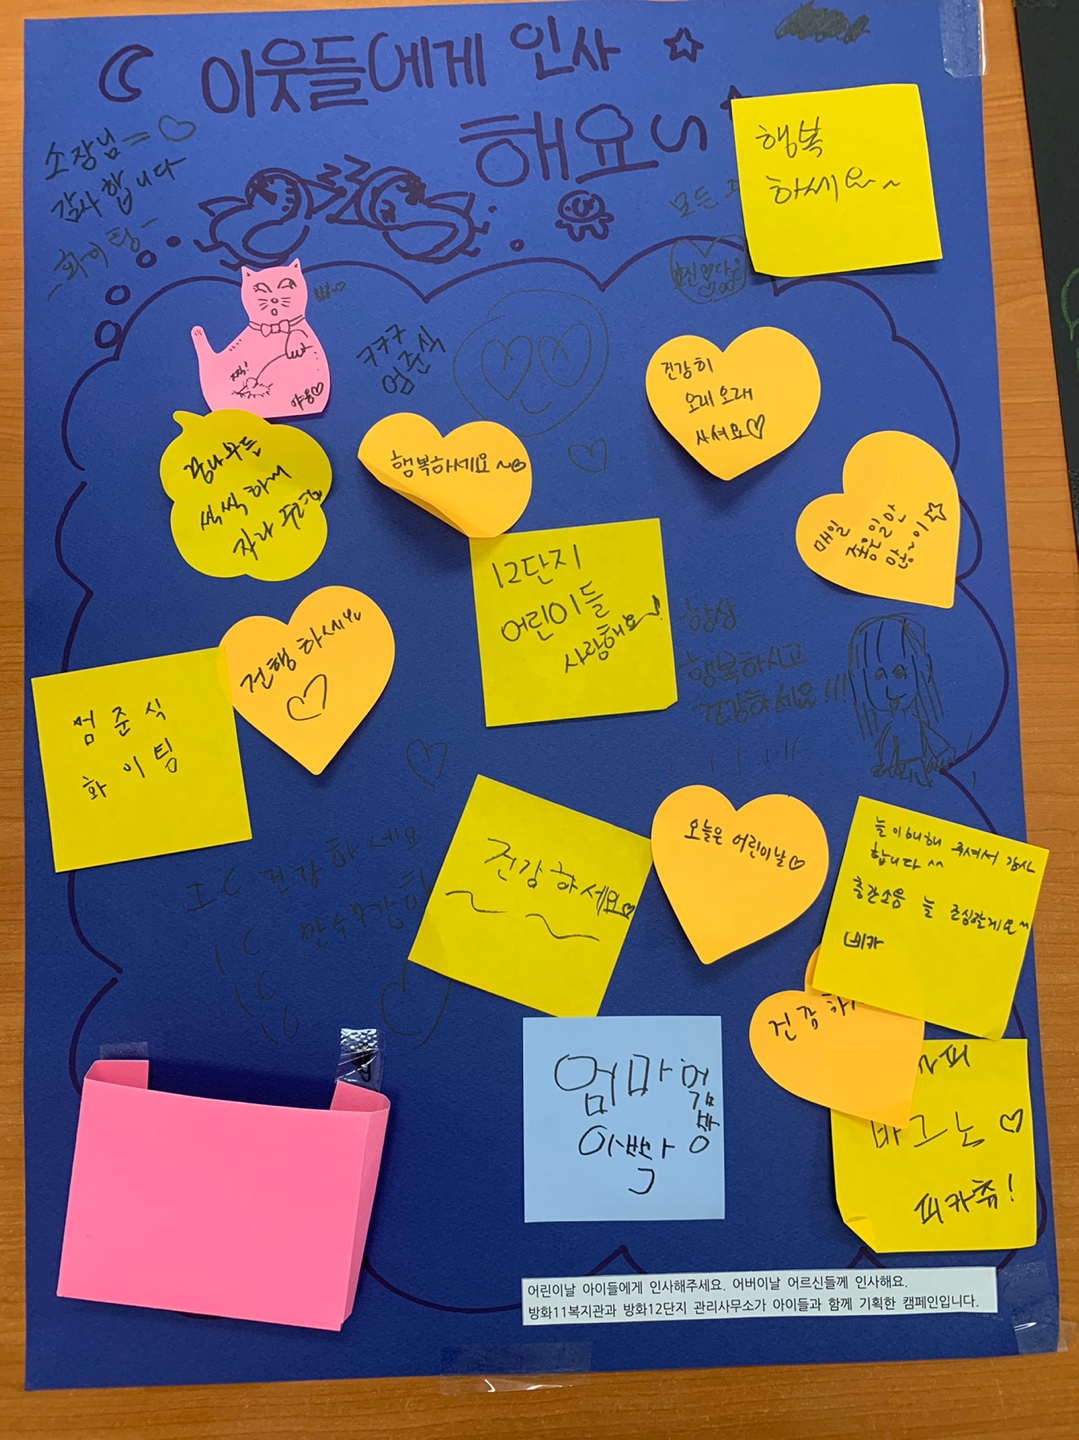 이웃들에게 인사
해요~
소장님=♡
감사합니다
화이팅-
행복
하세요~
모든
ㅋㅋㅋ
엄준식
야옹♡
건강히
오래오래
사셔요♡
행복하세요~
꿈나무들
씩씩하게
자라
매일
좋은일만
12단지
어린이들
사랑해요~!
건행하세요
♡
항상
행복하시고
건강하세요!!!
엄준식
화이팅
건강하세요
건강하세요♡
오늘은 어린이날♡
늘 이해해 주셔서 감사
합니다^^
층간소음 늘 조심할게요^^
건강하
♡
피카츄!
엄마
아빠
어린이날 아이들에게 인사해주세요. 어버이날 어르신들께 인사해요.
방화11복지관과 방화12단지 관리사무소가 아이들과 함께 기획한 캠페인입니다.